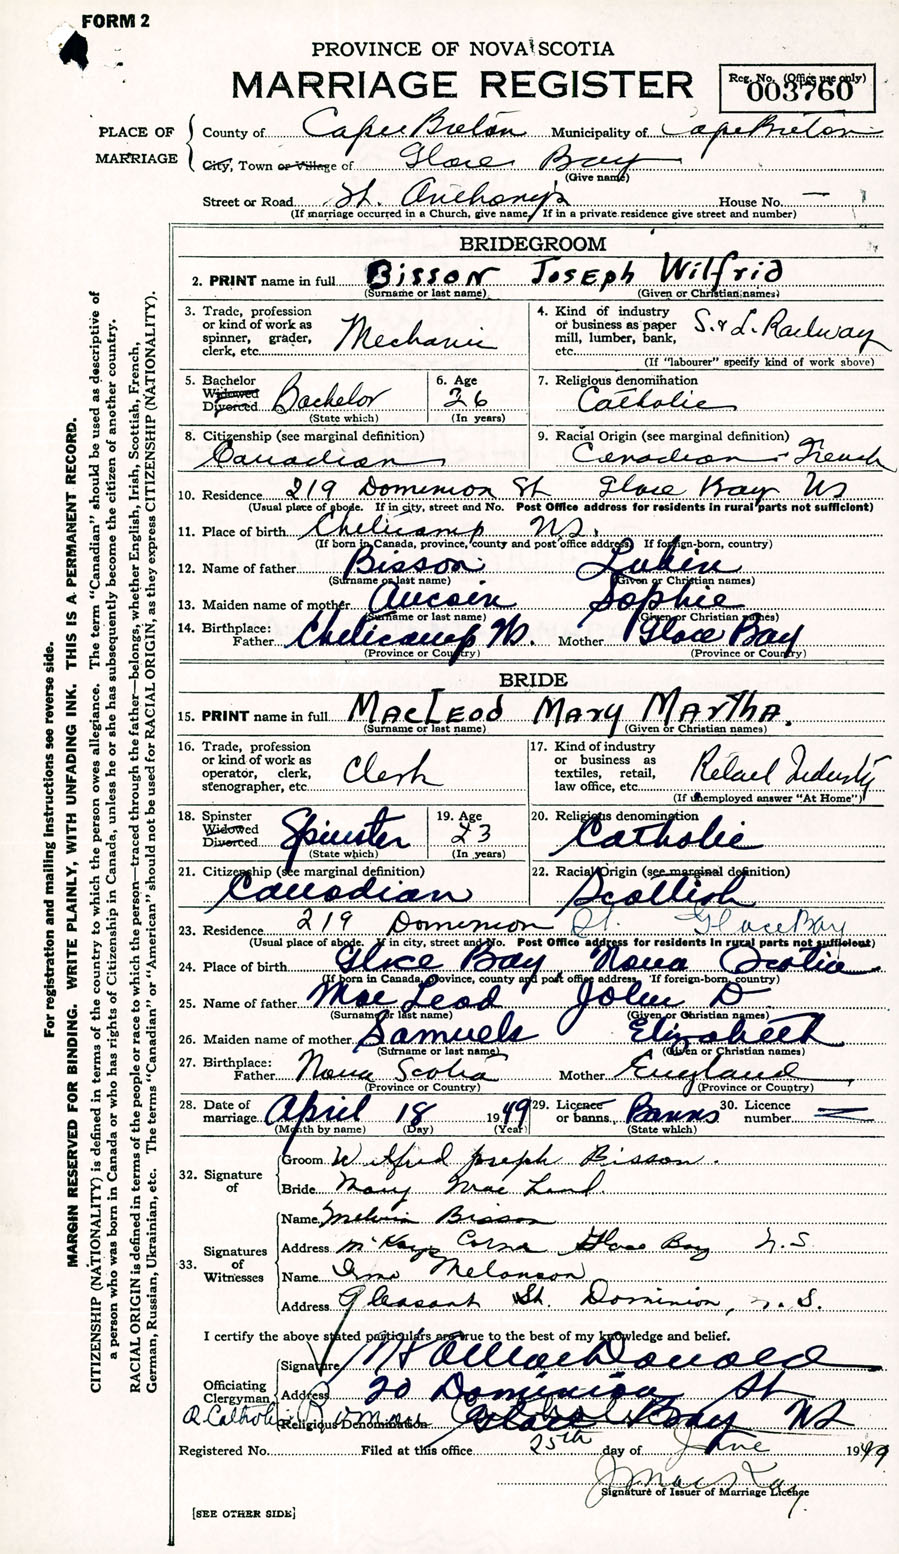 FORM 2
PROVINCE OF NOVA SCOTIA
MARRIAGE REGISTER
Reg. No. (Office use only)
003760
PLACE OF MARRIAGE
County of Cape Breton Municipality of Cape Breton
City, Town or Village of Glace Bay
(Give name)
Street or Road St. Anthony's House No. —
(If marriage occurred in a Church, give name. If in a private residence give street and number)
BRIDEGROOM
2. PRINT name in full Bisson Joseph Wilfrid
(Surname or last name) (Given or Christian names)
3. Trade, profession or kind of work as spinner, grader, clerk, etc. Mechanic
4. Kind of industry or business as paper mill, lumber, bank, etc. S. & L. Railway
(If "labourer" specify kind of work above)
5. Bachelor Widowed Divorced Bachelor
(State which)
6. Age 26
(In years)
7. Religious denomination Catholic
8. Citizenship (see marginal definition) Canadian
9. Racial Origin (see marginal definition) Canadian - French
10. Residence 219 Dominion St Glace Bay NS
(Usual place of abode. If in city, street and No. Post Office address for residents in rural parts not sufficient)
11. Place of birth Chelicamp NS.
(If born in Canada, province, county and post office address. If foreign-born, country)
12. Name of father Bisson Lubin
(Surname or last name) (Given or Christian names)
13. Maiden name of mother Aucoin Sophie
(Surname or last name) (Given or Christian names)
14. Birthplace: Father Chelicamp NS. Mother Glace Bay
(Province or Country) (Province or Country)
BRIDE
15. PRINT name in full MacLeod Mary Martha.
(Surname or last name) (Given or Christian names)
16. Trade, profession or kind of work as operator, clerk, stenographer, etc. Clerk
17. Kind of industry or business as textiles, retail, law office, etc. Retael Industry
(If unemployed answer "At Home")
18. Spinster Widowed Divorced Spinster
(State which)
19. Age 23
(In years)
20. Religious denomination Catholic
21. Citizenship (see marginal definition) Canadian
22. Racial Origin (see marginal definition) Scottish
23. Residence 219 Dominion St. Glace Bay
(Usual place of abode. If in city, street and No. Post Office address for residents in rural parts not sufficient)
24. Place of birth Glace Bay Nova Scotia
(If born in Canada, province, county and post office address. If foreign-born, country)
25. Name of father MacLeod John D
(Surname or last name) (Given or Christian names)
26. Maiden name of mother Samuels Elizabeth
(Surname or last name) (Given or Christian names)
27. Birthplace: Father Nova Scotia Mother England
(Province or Country) (Province or Country)
28. Date of marriage April 18 1949
(Month by name) (Day) (Year)
29. Licence or banns Banns
(State which)
30. Licence number —
32. Signature of
Groom Wilfred Joseph Bisson.
Bride Mary MacLeod.
33. Signatures of Witnesses
Name Melvin Bisson
Address McKays Corner Glace Bay N.S.
Name Melanson
Address Pleasant St. Dominion, N.S.
I certify the above stated particulars are true to the best of my knowledge and belief.
Officiating Clergyman
Signature MacDonald
Address 20 Dominion St
Glace Bay NS
R. Catholic
Religious Denomination Roman Catholic
Registered No. Filed at this office 25th day of June 1949
J MacKay
Signature of Issuer of Marriage Licence
[SEE OTHER SIDE]
For registration and mailing instructions see reverse side.
MARGIN RESERVED FOR BINDING. WRITE PLAINLY, WITH UNFADING INK. THIS IS A PERMANENT RECORD.
CITIZENSHIP (NATIONALITY) is defined in terms of the country to which the person owes allegiance. The term "Canadian" should be used as descriptive of
a person who was born in Canada or who has rights of Citizenship in Canada, unless he or she has subsequently become the citizen of another country.
RACIAL ORIGIN is defined in terms of the people or race to which the person—traced through the father—belongs, whether English, Irish, Scottish, French,
German, Russian, Ukrainian, etc. The terms "Canadian" or "American" should not be used for RACIAL ORIGIN, as they express CITIZENSHIP (NATIONALITY).